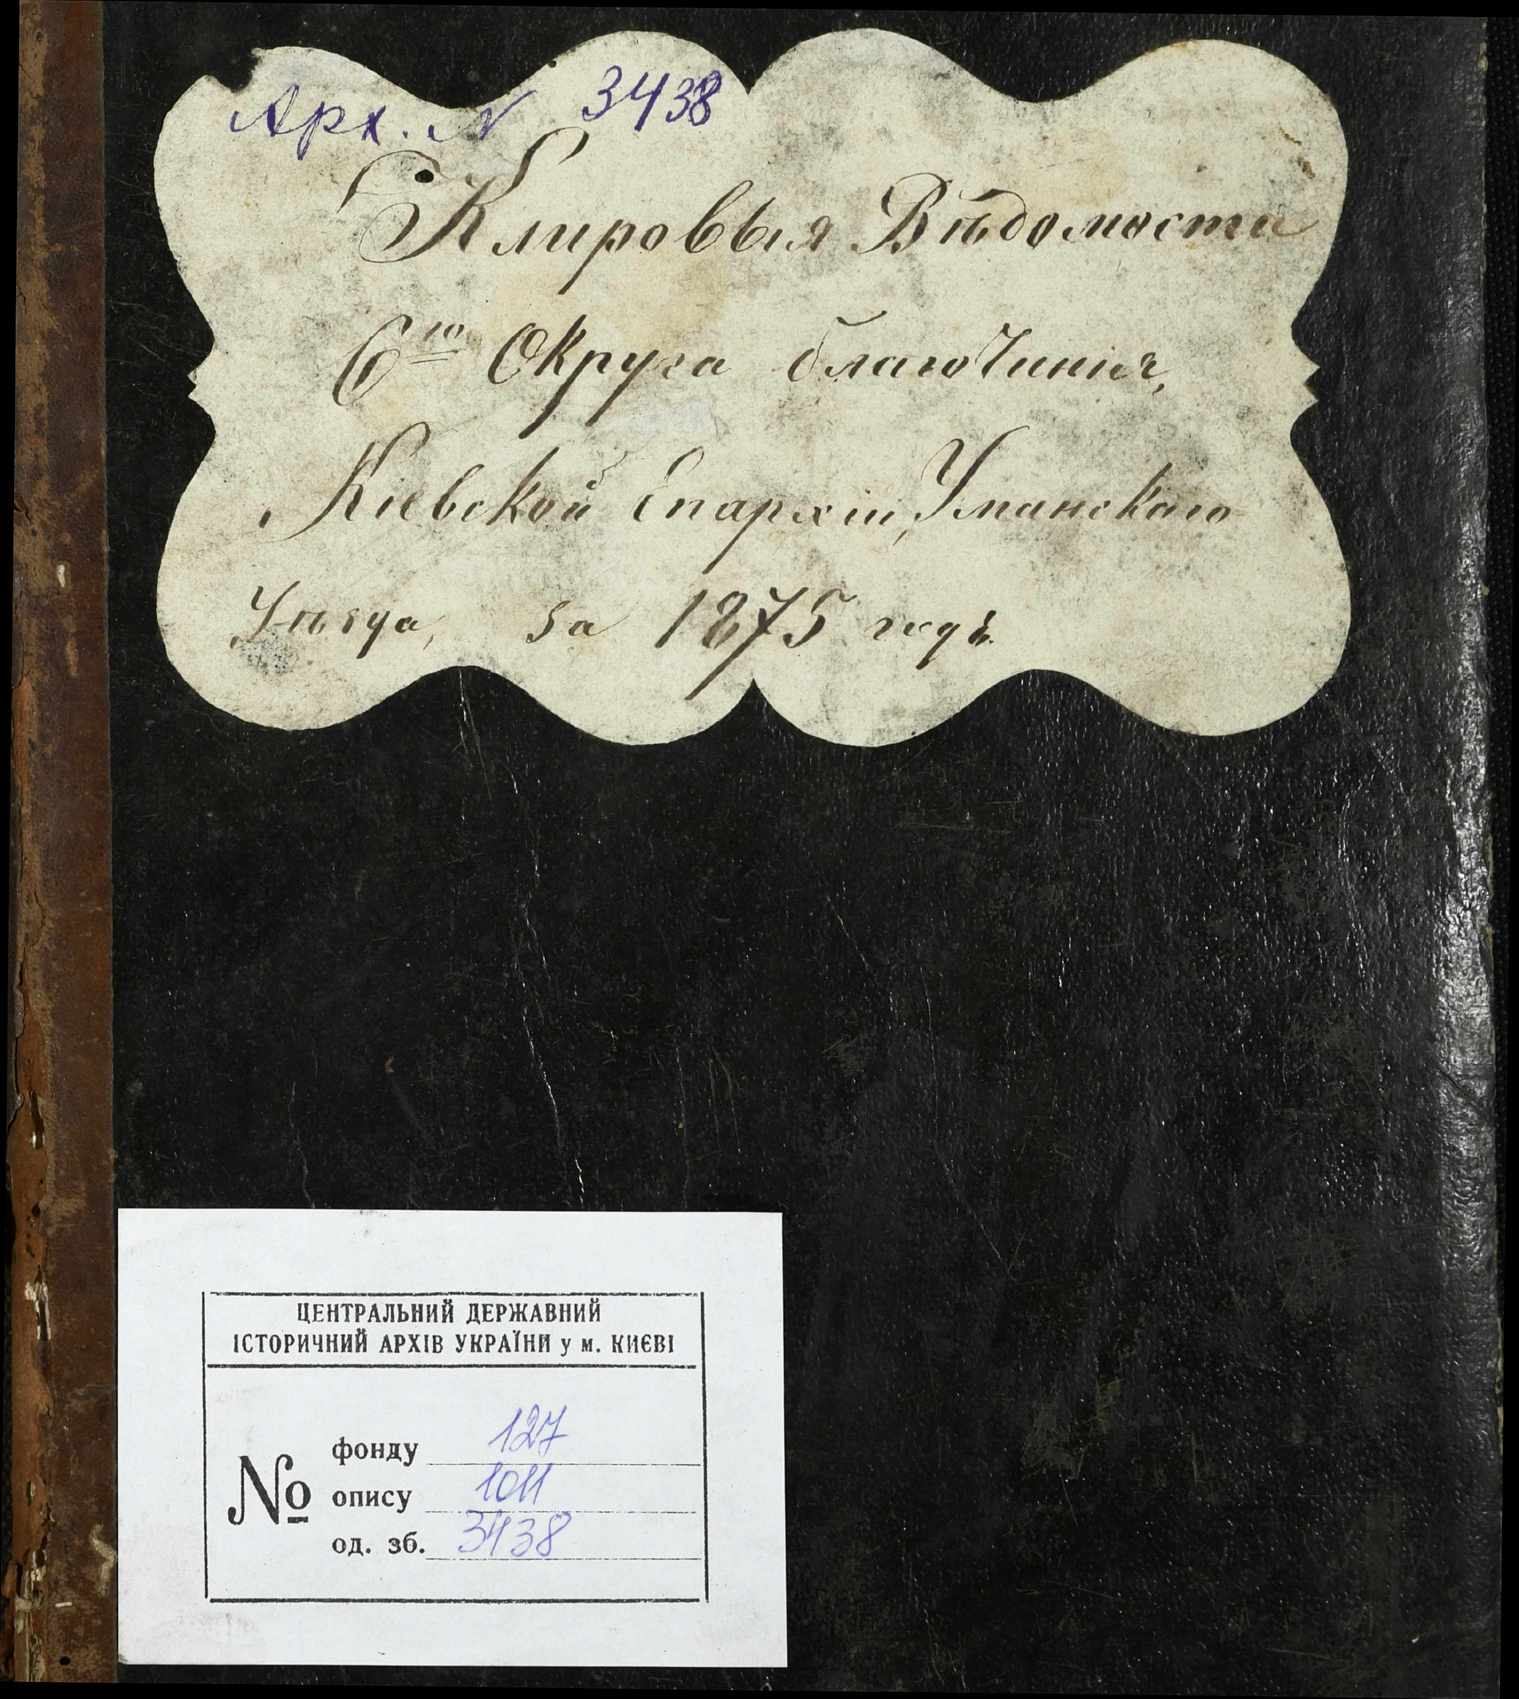 Арх. № 3438
Клировыя Вѣдомости
6го Округа благочинія,
Кіевской Епархіи, Уманскаго
Уѣзда, за 1875 годъ.
ЦЕНТРАЛЬНИЙ ДЕРЖАВНИЙ
ІСТОРИЧНИЙ АРХІВ УКРАЇНИ у м. КИЄВІ
№
фонду 127
опису 1011
од. зб. 3438